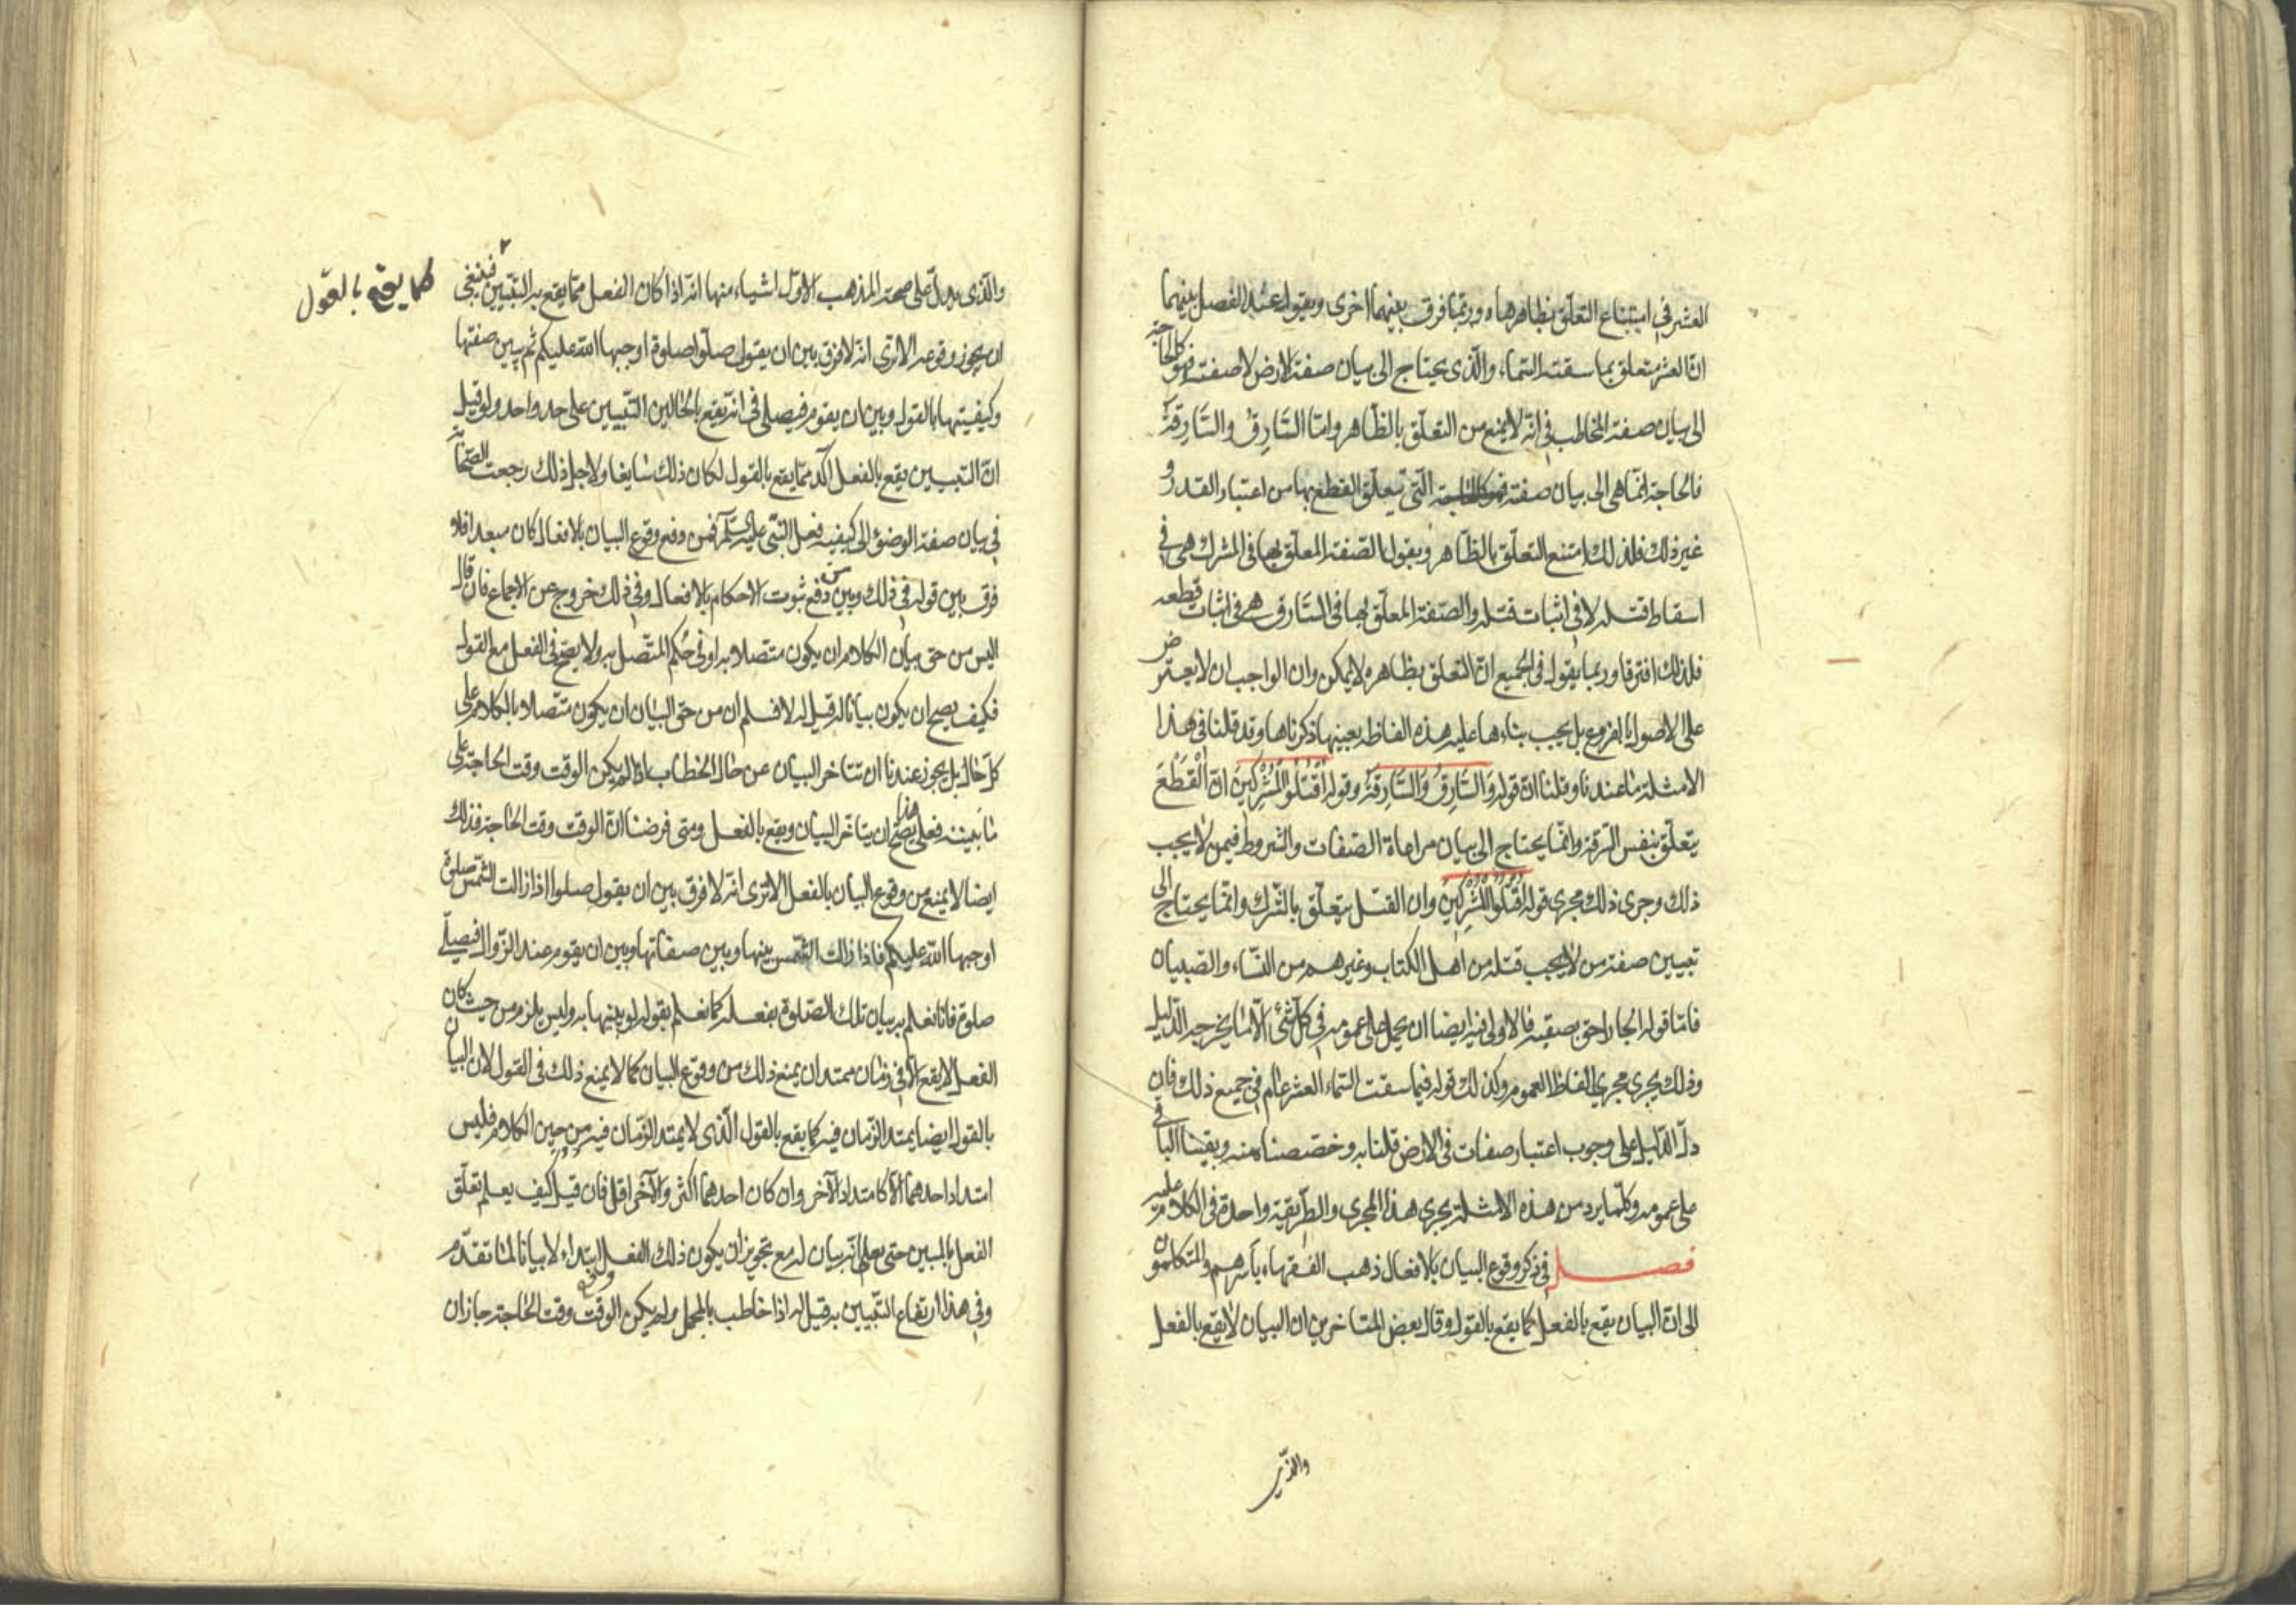 العشر في امتناع التعلّق بظاهرها وربّما فرق بينهما اخرى ويقول عند الفصل بينهما
انّ العشر متعلق بما سقته السّماء والّذى يحتاج الى بيان صفة الارض لا صفة فهو كالحاجة
الى بيان صفة المخاطب في انّه لا يمنع من التعلّق بالظّاهر وامّا السَّارِقُ والسَّارِقَةُ
فالحاجة انّما هى الى بيان صفة التى يتعلّق القطع بها من اعتبار القدر و
غير ذلك فلذلك امتنع التعلّق بالظّاهر ويقول الصّفة المعلّق بها فى الشرك هى فى
اسقاط قتله لا في اثبات قتله والصّفة المعلّق بها فى السّارق هى فى اثبات قطعه
فلذلك افترقا وربما يقول فى الجميع انّ التعلق بظاهره لا يمكن وان الواجب ان لا يعترض
على الاصول بالفروع بل يجب بناءها عليه هذه الفاظه بعينها ذكرناها وقد قلنا فى هذا
الامثلة ما عندنا وقلنا انّ قوله وَالسَّارِقُ وَالسَّارِقَةُ وقوله اُقْتُلُوا الْمُشْرِكِينَ انّ الْقَطْعَ
يتعلّق بنفس السّرقة وانّما يحتاج الى بيان مراعاة الصّفات والشروط فيمن لا يجب
ذلك وجرى ذلك مجرى قوله اقتلوا المشركين وان القتل يتعلّق بالشّرك وانّما يحتاج الى
تبيين صفة من لا يجب قتله من اهل الكتاب وغيرهم من النّساء والصّبيان
فامّا قوله الجار احق بصقبه فالاولى فيه ايضا ان يحمل على عمومه في كلّ شئ الّا ما يخرجه الدّليل
وذلك يجرى مجرى الفاظ العموم وكذلك قوله فيما سقت السّماء العشر عام في جميع ذلك فان
دلّ الدّليل على وجوب اعتبار صفات فى الارض قلنا به وخصّصناه منه وبقينا الباقى
على عمومه وكلّما يرد من هذه الامثلة يجرى هذا المجرى والطّريقة واحدة فى الكلام عليه
فصل في ذكر وقوع البيان بالافعال ذهب الفقهاء بأسرهم والمتكلمون
الى انّ البيان يقع بالفعل كما يقع بالقول وقال بعض المتاخرين ان البيان لا يقع بالفعل
والذّى
والّذى يدلّ على صحة المذهب الاوّل اشياء منها انّه اذا كان الفعل ممّا يقع به التبّيين فينبغى
كما يقع بالقول
ان يجوز وقوعه الا ترى انّه لا فرق بين ان يقول صلّوا صلوة اوجبها الله عليكم ثم يبين صفتها
وكيفيتها بالقول وبين ان يقوم فيصلى فى انّه يقع بالحالين التّبيين على حد واحد ولو قيل
انّ التبيين يقع بالفعل آكد ممّا يقع بالقول لكان ذلك سايغا ولاجل ذلك رجعت الصّحابة
في بيان صفة الوضوء الى كيفيه فعل النّبى فمن دفع وقوع البيان بالافعال كان مبعدا ولا
فرق بين قوله في ذلك وبين من دفع ثبوت الاحكام بالافعال وفى ذلك خروج عن الاجماع فان قال
اليس من حق بيان الكلام ان يكون متصلا به او فى حُكم المتّصل به ولا يصح فى الفعل مع القول
فكيف يصح ان يكون بيانا له قيل له لا نسلم ان من حق البيان ان يكون متّصلا بالكلام على
كلّ حال بل يجوز عندنا ان تتاخر البيان عن حال الخطاب اذا لم يكن الوقت وقت الحاجة على
ما نبينه فعلى هذا يصحّ ان يتاخّر البيان ويقع بالفعل ومتى فرضنا انّ الوقت وقت الحاجة فذلك
ايضا لا يمنع من وقوع البيان بالفعل الا ترى انّه لا فرق بين ان يقول صلوا اذا زالت الشّمس صلوة
اوجبها الله عليكم فاذا زالت الشّمس بينها وبين صفاتها وبين ان يقوم عند الزّوال فيصلّى
صلوة فانّا نعلم به بيان تلك الصّلوة بفعله كما نعلم بقوله لو بينها به وليس يلزم من حيث كان
الفعل لا يقع الّا فى زمان ممتد ان يمنع ذلك من وقوع البيان كما لا يمنع ذلك فى القول لان البيان
بالقول ايضا يمتد الزّمان فيه كما يقع بالقول الّذى لا يمتد الزّمان فيه من حين الكلام فليس
امتداد احدهما الّا كامتداد الآخر وان كان احدهما اكثر والآخر اقل فان قيل كيف يعلم تعلّق
الفعل بالمبين حتى يعلم انّه بيان له مع تجويز ان يكون ذلك الفعل ابتداء لا بيانا لما تقدّم
وفي هذا ارتفاع التّبيين به قيل له اذا خاطب بالمجمل ولم يكن الوقت وقت الحاجة جاز ان